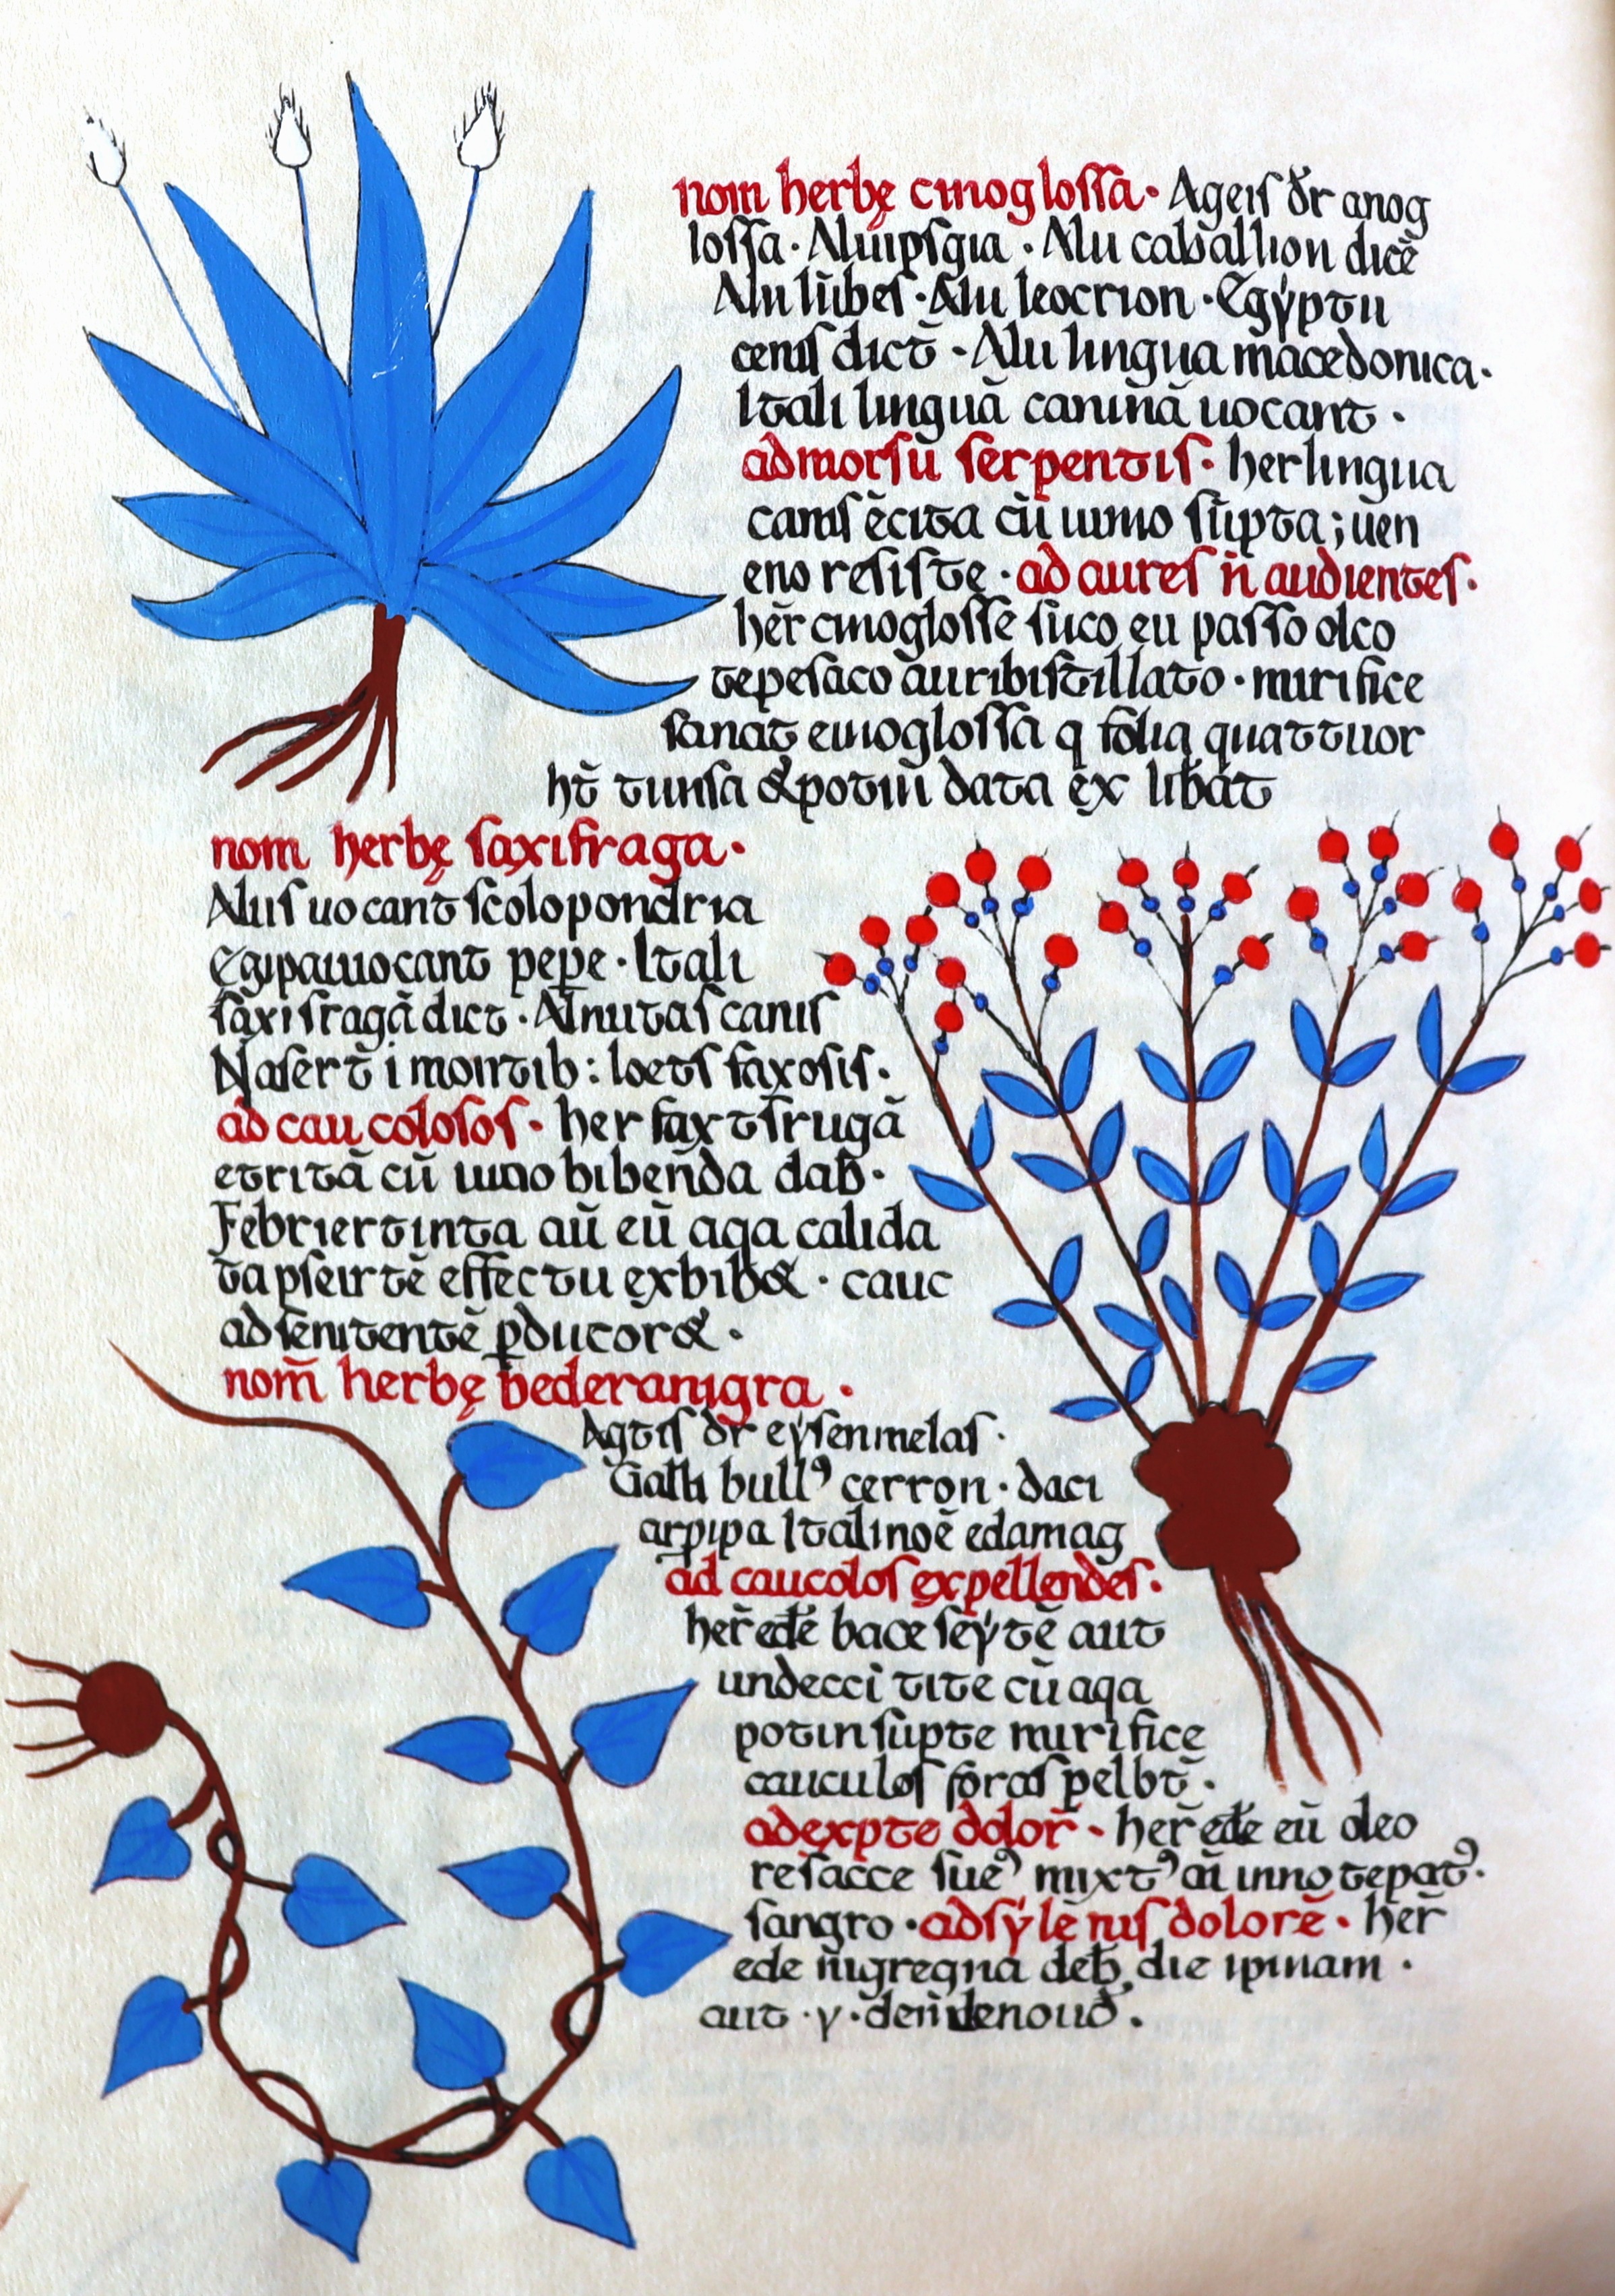 nom herbę cinoglossa· Ageis dr̄ anog
lossa· Aliiipsgia · Alii caballion dicē
Alii lūbes·Alii leocrion·Egÿptii
cenis dict̄·Alii lingua macedonica·
Itali linguā caninā uocant·
ad morsū serpentis· her lingua
canis ēcita cū uino sūpta; uen
eno resiste·ad aures n̄ audientes·
hēr cinoglosse suco eu passo oleo
tepefaco auribistillato·mirifice
sanat cinoglossa q folia quattuor
ht̄ tunsa &potiū data ex libāt
nom herbę saxifraga·
Aliis uocant scolopondria
Egipaiiuocant pepe·Itali
saxifragā dict·Alnutas canis
Nasert̄ i montib: locts saxosis·
ad cau colosos· her saxtfrugā
etritā cū uino bibenda dab·
Febriertinta aū eū aqa calida
ta pseirtē effectu exbib&· cauc
ad senitentē pducor&·
nom̄ herbę bederanigra·
Agtis dr̄ eÿsenmelas·
Galli bullꝰ cerron·daci
arpipa Italinoē edamag
ad caucolos expellendes·
her̄ edē bace seÿtē aut
undecci tite cū aqa
potinsupte mirifice
cauculos foras pelbt̄·
adexpte dolor̄· her̄ ede eū oleo
resacce sueꝰ mixtꝰ aū inno tepatꝰ·
sangro·adsÿlē nis dolorē· her̄
ede nigreqna deb die ipinam·
aut·y·den denoud·